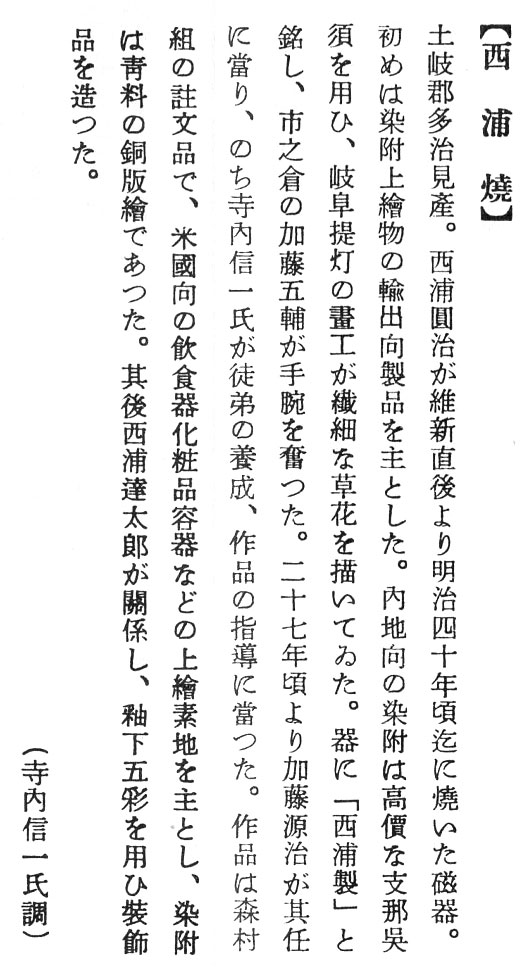 【西浦燒】
土岐郡多治見產。西浦圓治が維新直後より明治四十年頃迄に燒いた磁器。
初めは染附上繪物の輸出向製品を主とした。內地向の染附は高價な支那吳
須を用ひ、岐阜提灯の畫工が纎細な草花を描いてゐた。器に「西浦製」と
銘し、市之倉の加藤五輔が手腕を奮つた。二十七年頃より加藤源治が其任
に當り、のち寺內信一氏が徒弟の養成、作品の指導に當つた。作品は森村
組の註文品で、米國向の飮食器化粧品容器などの上繪素地を主とし、染附
は靑料の銅版繪であつた。其後西浦達太郎が關係し、釉下五彩を用ひ裝飾
品を造つた。
（寺內信一氏調）